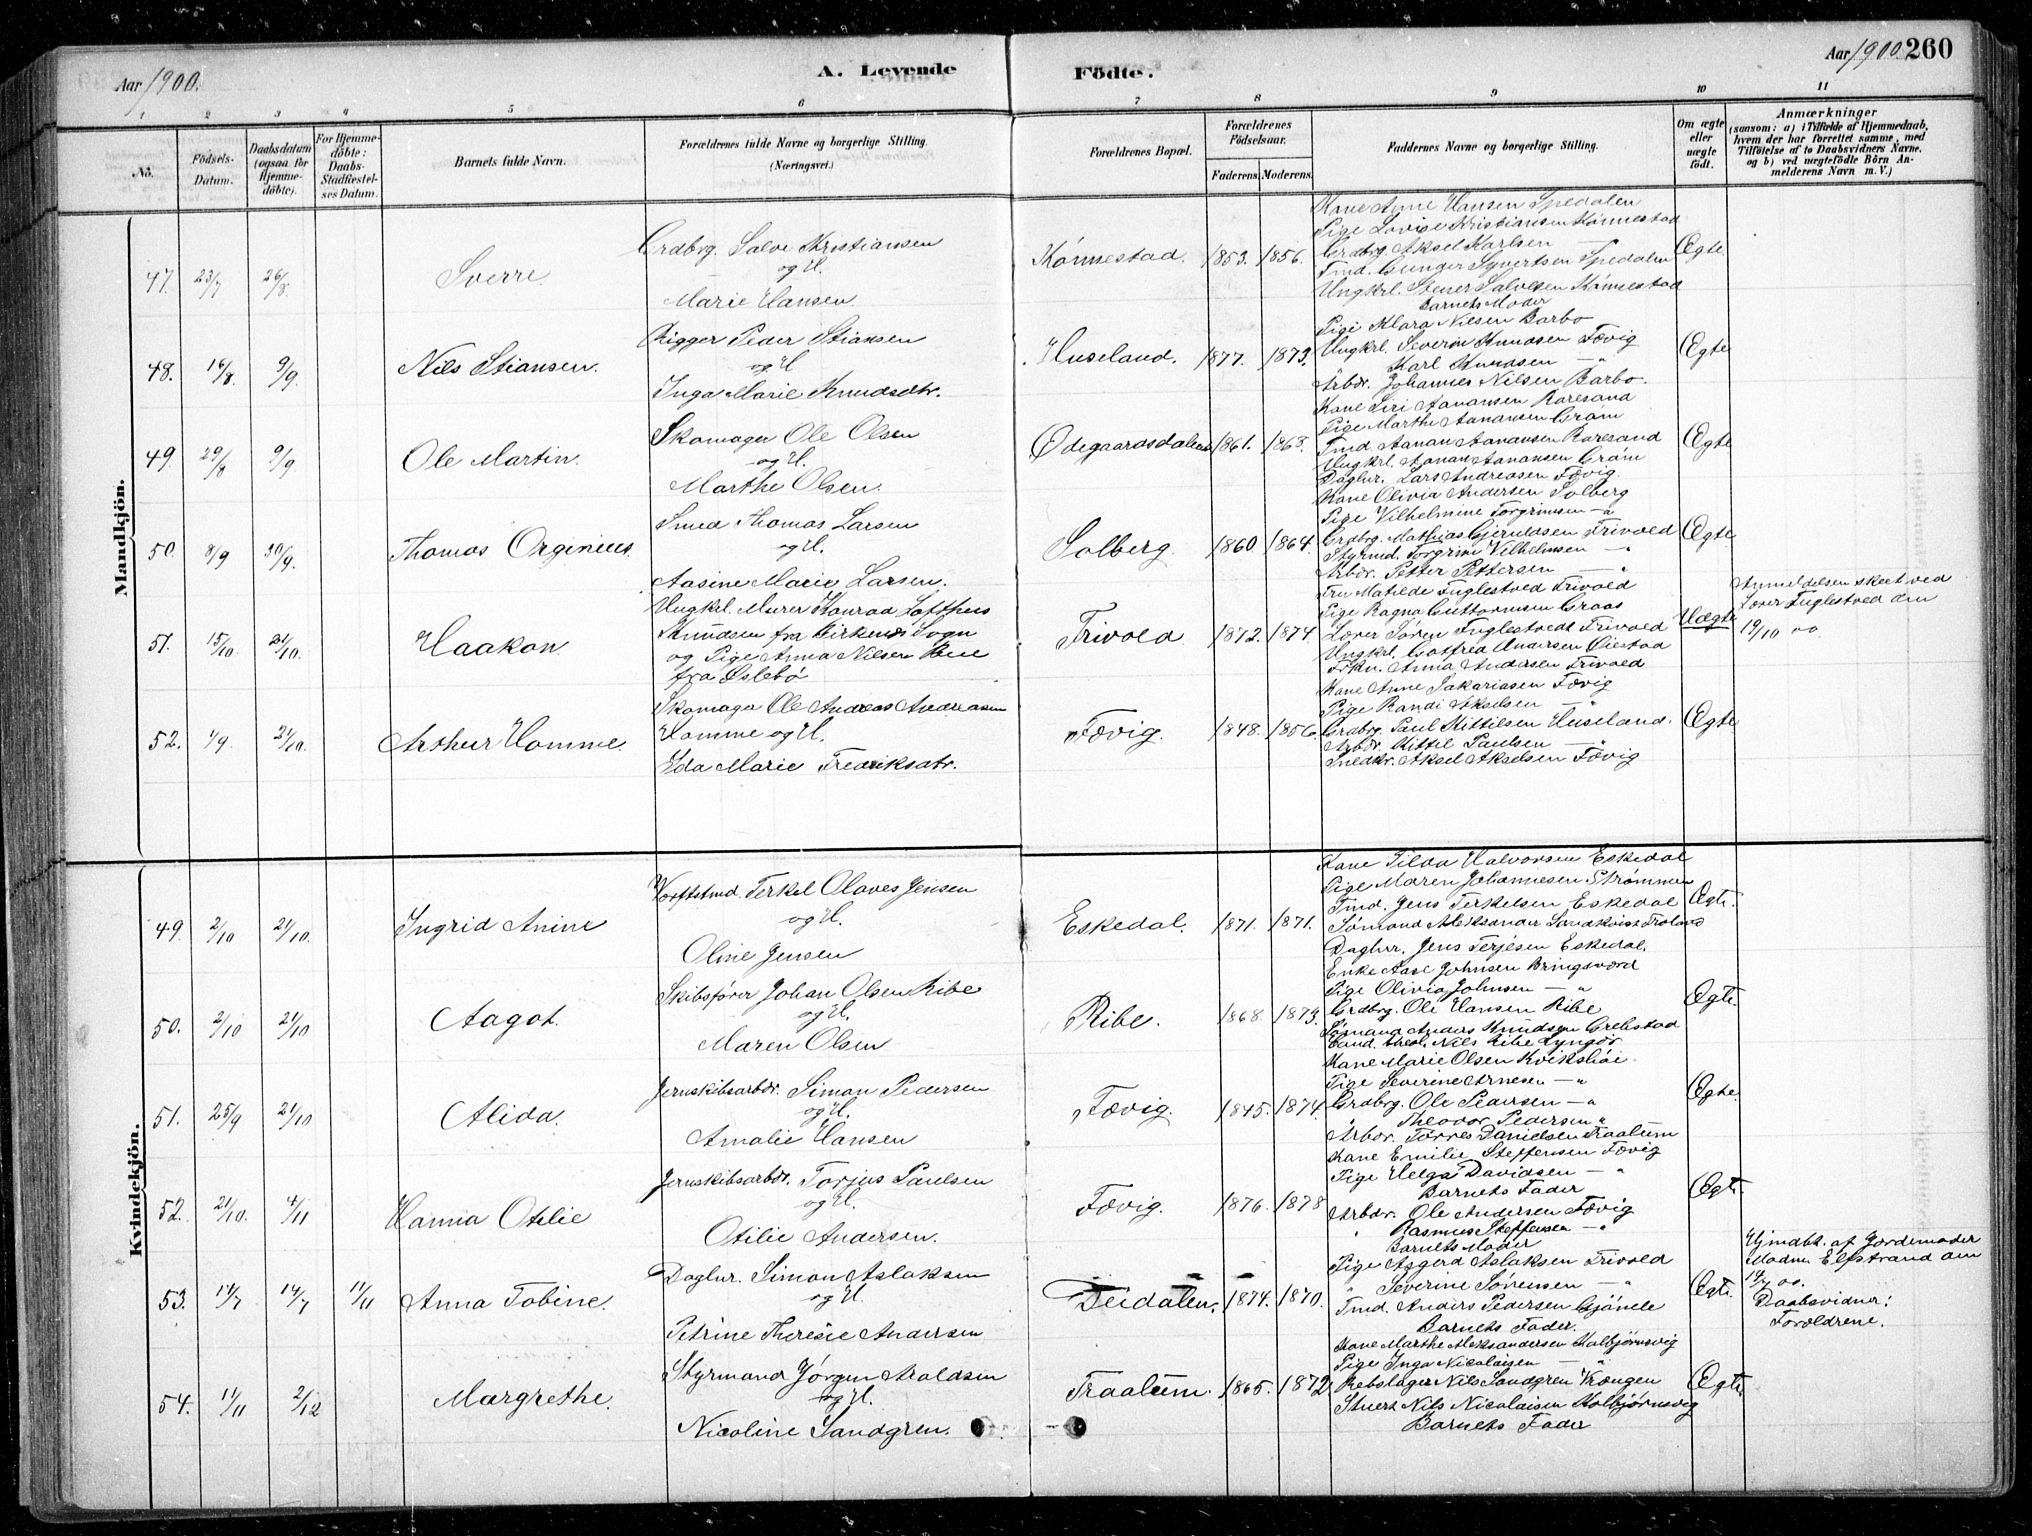 Aar 1900.
A. Levende Födte.
Aar 1900. 260
1 2 3 4 5 6 7 8 9 10 11
No.
Födsels-Datum.
Daabsdatum (ogsaa for Hjemme-döbte).
For Hjemme-döbte: Daabs-Stadfæstel-ses Datum.
Barnets fulde Navn.
Forældrenes fulde Navne og borgerlige Stilling. (Næringsvei.)
Forældrenes Bopæl.
Forældrenes Födselsaar.
Faderens. Moderens.
Faddernes Navne og borgerlige Stilling.
Om ægte eller uægte födt.
Anmærkninger
(saasom: a) i Tilfælde af Hjemmedaab, hvem der har forrettet samme, med Tilföielse af to Daabsvidners Navne, og b) ved uægtefödte Börn Anmelderens Navn m. V.)
Mandkjön.
47. 23/7 26/8 Sverre.
Grdbrg. Salve Kristiansen
og H.
Marie Hansen
Kónnestad. 1853. 1856.
Kane Anne Hansen Spedalen
Pige Lovise Kristiansen Kónnestad
Grdbrg. Aksel Karlsen —
Tmd. Gunder Syvertsen Spedalen
Ungkrl. Stener Salvesen Kónnestad
Barnets Moder
Ægte
48. 16/8 9/9 Nils Stiansen.
Rigger Peder Stiansen
og H
Inga Marie Knudsdtr.
Huseland. 1877. 1873.
Pige Klara Nilsen Barbo
Ungkrl. Severin Knudsen Fævig
Karl Knudsen — "
Arbdr. Johannes Nilsen Barbo.
Ægte
49. 29/8 9/9 Ole Martin.
Skomager Ole Olsen
og H.
Marthe Olsen.
Ødegaardsdalen 1861. 1863.
Kane Siri Aanansen Raresand
Pige Marthe Aanansen Gröm
Tmd Aanan Aanansen Raresand
Ungkrl. Aanan Aanansen Gröm
Daglnr. Lars Andreasen Fævig.
Ægte
50. 8/9 30/9. Thomas Orginius.
Smed Thomas Larsen
og H.
Aasine Marie Larsen.
Solberg. 1860 1864.
Kane Olivia Andersen Solberg
Pige Vilhelmine Torgrimsen — "
Grdbrg. Mathias Gjeruldsen Frivold
Styrmd. Torgrim Vilhelmsen — "
Arbdr. Petter Pettersen — "
Ægte.
51. 15/10 21/10. Haakon
Ungkrl. Murer Konrad Lofthus
Knudsen fra Birkenes Sogn
og Pige Anna Nilsen
fra Øslebö
Frivold 1872. 1874
Fru Matilde Fuglestved Frivold
Pige Ragna Guttormsen Groos
Lærer Sören Fuglestvedt Frivold
Ungkrl. Gotfred Andersen Öiestad
Frkn. Anna Andersen Frivold
Uægte
Anmeldelsen skeet ved
Lærer Fuglestved den
19/10 00
52. 1/9. 21/10. Arthur Homme.
Skomager Ole Andreas Andreasen
Homme og H.
Ida Marie Fredriksdtr.
Fævig. 1848. 1856.
Kane Anne Sakariasen Fævig
Pige Randi Akselsen — "
Grdbrg. Paul Kittilsen Huseland.
Arbdr. Kittil Paulsen — "
Snedkr. Aksel Akselsen Fævig
Ægte
Kvindekjön.
49. 2/10 21/10. Ingrid Anine
Værftstmd. Terkel Olaves Jensen
og H.
Oline Jensen
Eskedal. 1871. 1871.
Kane Tilda Halvorsen Eskedal
Pige Maren Johannesen Strömmen
Tmd. Jens Terkelsen Eskedal
Sömand Aleksander Sandkvist Froland
Daglnr. Jens Terjesen Eskedal.
Ægte.
50. 2/10 21/10 Aagot.
Skibsförer Johan Olsen Ribe
og H.
Maren Olsen
Ribe. 1868. 1873.
Enke Aase Johnsen Bringsværd
Pige Olivia Johnsen — "
Grdbrg. Ole Hansen Ribe
Sömand Anders Knudsen Grefstad
Cand. theol. Nils Ribe Lyngör
Ægte.
51. 25/9 21/10 Alida.
Jernskibsarbdr. Simon Pedersen
og H.
Amalie Hansen
Fævig. 1845. 1874.
Kane Marie Olsen Kvikshöi.
Pige Severine Arnesen — "
Grdbrg. Ole Pedersen — "
Theodor Pedersen "
Arbdr. Törres Danielsen Fraalum
Ægte.
52. 21/10. 4/11 Hanna Otilie
Jernskibsarbdr. Torjus Paulsen
og H.
Otilie Andersen.
Fævig. 1876. 1878
Kane Emilie Steffensen Fævig
Pige Helga Davidsen — "
Barnets Fader
Arbdr. Ole Andersen Fævig
" Rasmus Steffensen — "
Barnets Moder
Ægte.
53. 14/7 14/7 11/11 Anna Tobine.
Daglnr. Simon Aslaksen
og H.
Petrine Theresie Andersen
Deidalen. 1874. 1870.
Pige Asgerd Aslaksen Frivold
" Severine Sörensen — "
Tmd. Anders Pedersen Gjönele
Barnets Fader.
Ægte.
Hjmdbt. af Jordemoder
Madm. Elfstrand den
14/7 00.
Daabsvidner:
Forældrene.
54. 11/11 2/12 Margrethe.
Styrmand Jörgen Aroldsen
og H.
Nicoline Sandgren.
Fraalum. 1865. 1872
Kane Marthe Aleksandersen Kalbjörnsvig
Pige Inga Nicolaisen — "
Rebslager Nils Sandgren Krøgen
Stuert Nils Nicolaisen Kolbjörnsvig
Barnets Fader
Ægte.